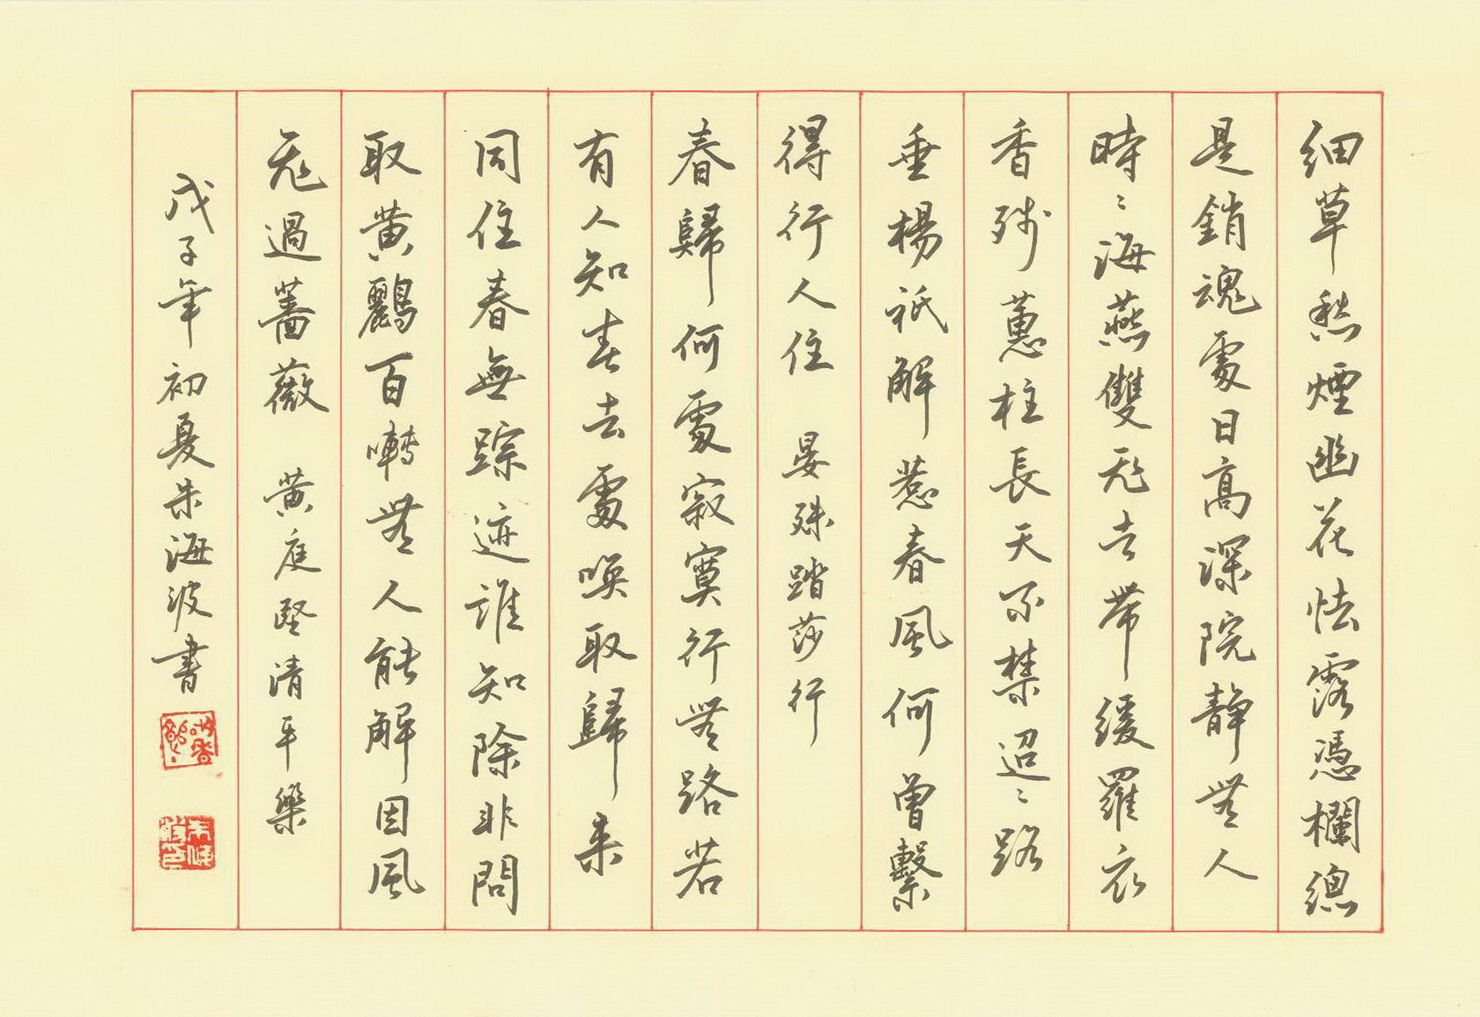 細草愁煙幽花怯露憑欄總
是銷魂處日高深院靜無人
時〻海燕雙飛去帶緩羅衣
香殘蕙柱長天不禁迢〻路
垂楊祇解惹春風何曾繫
得行人住 晏殊踏莎行
春歸何處寂寞行無路若
有人知春去處喚取歸來
同住春無踪迹誰知除非問
取黄鸝百囀無人能解因風
飛過薔薇 黄庭堅清平樂
戊子年初夏朱海波書